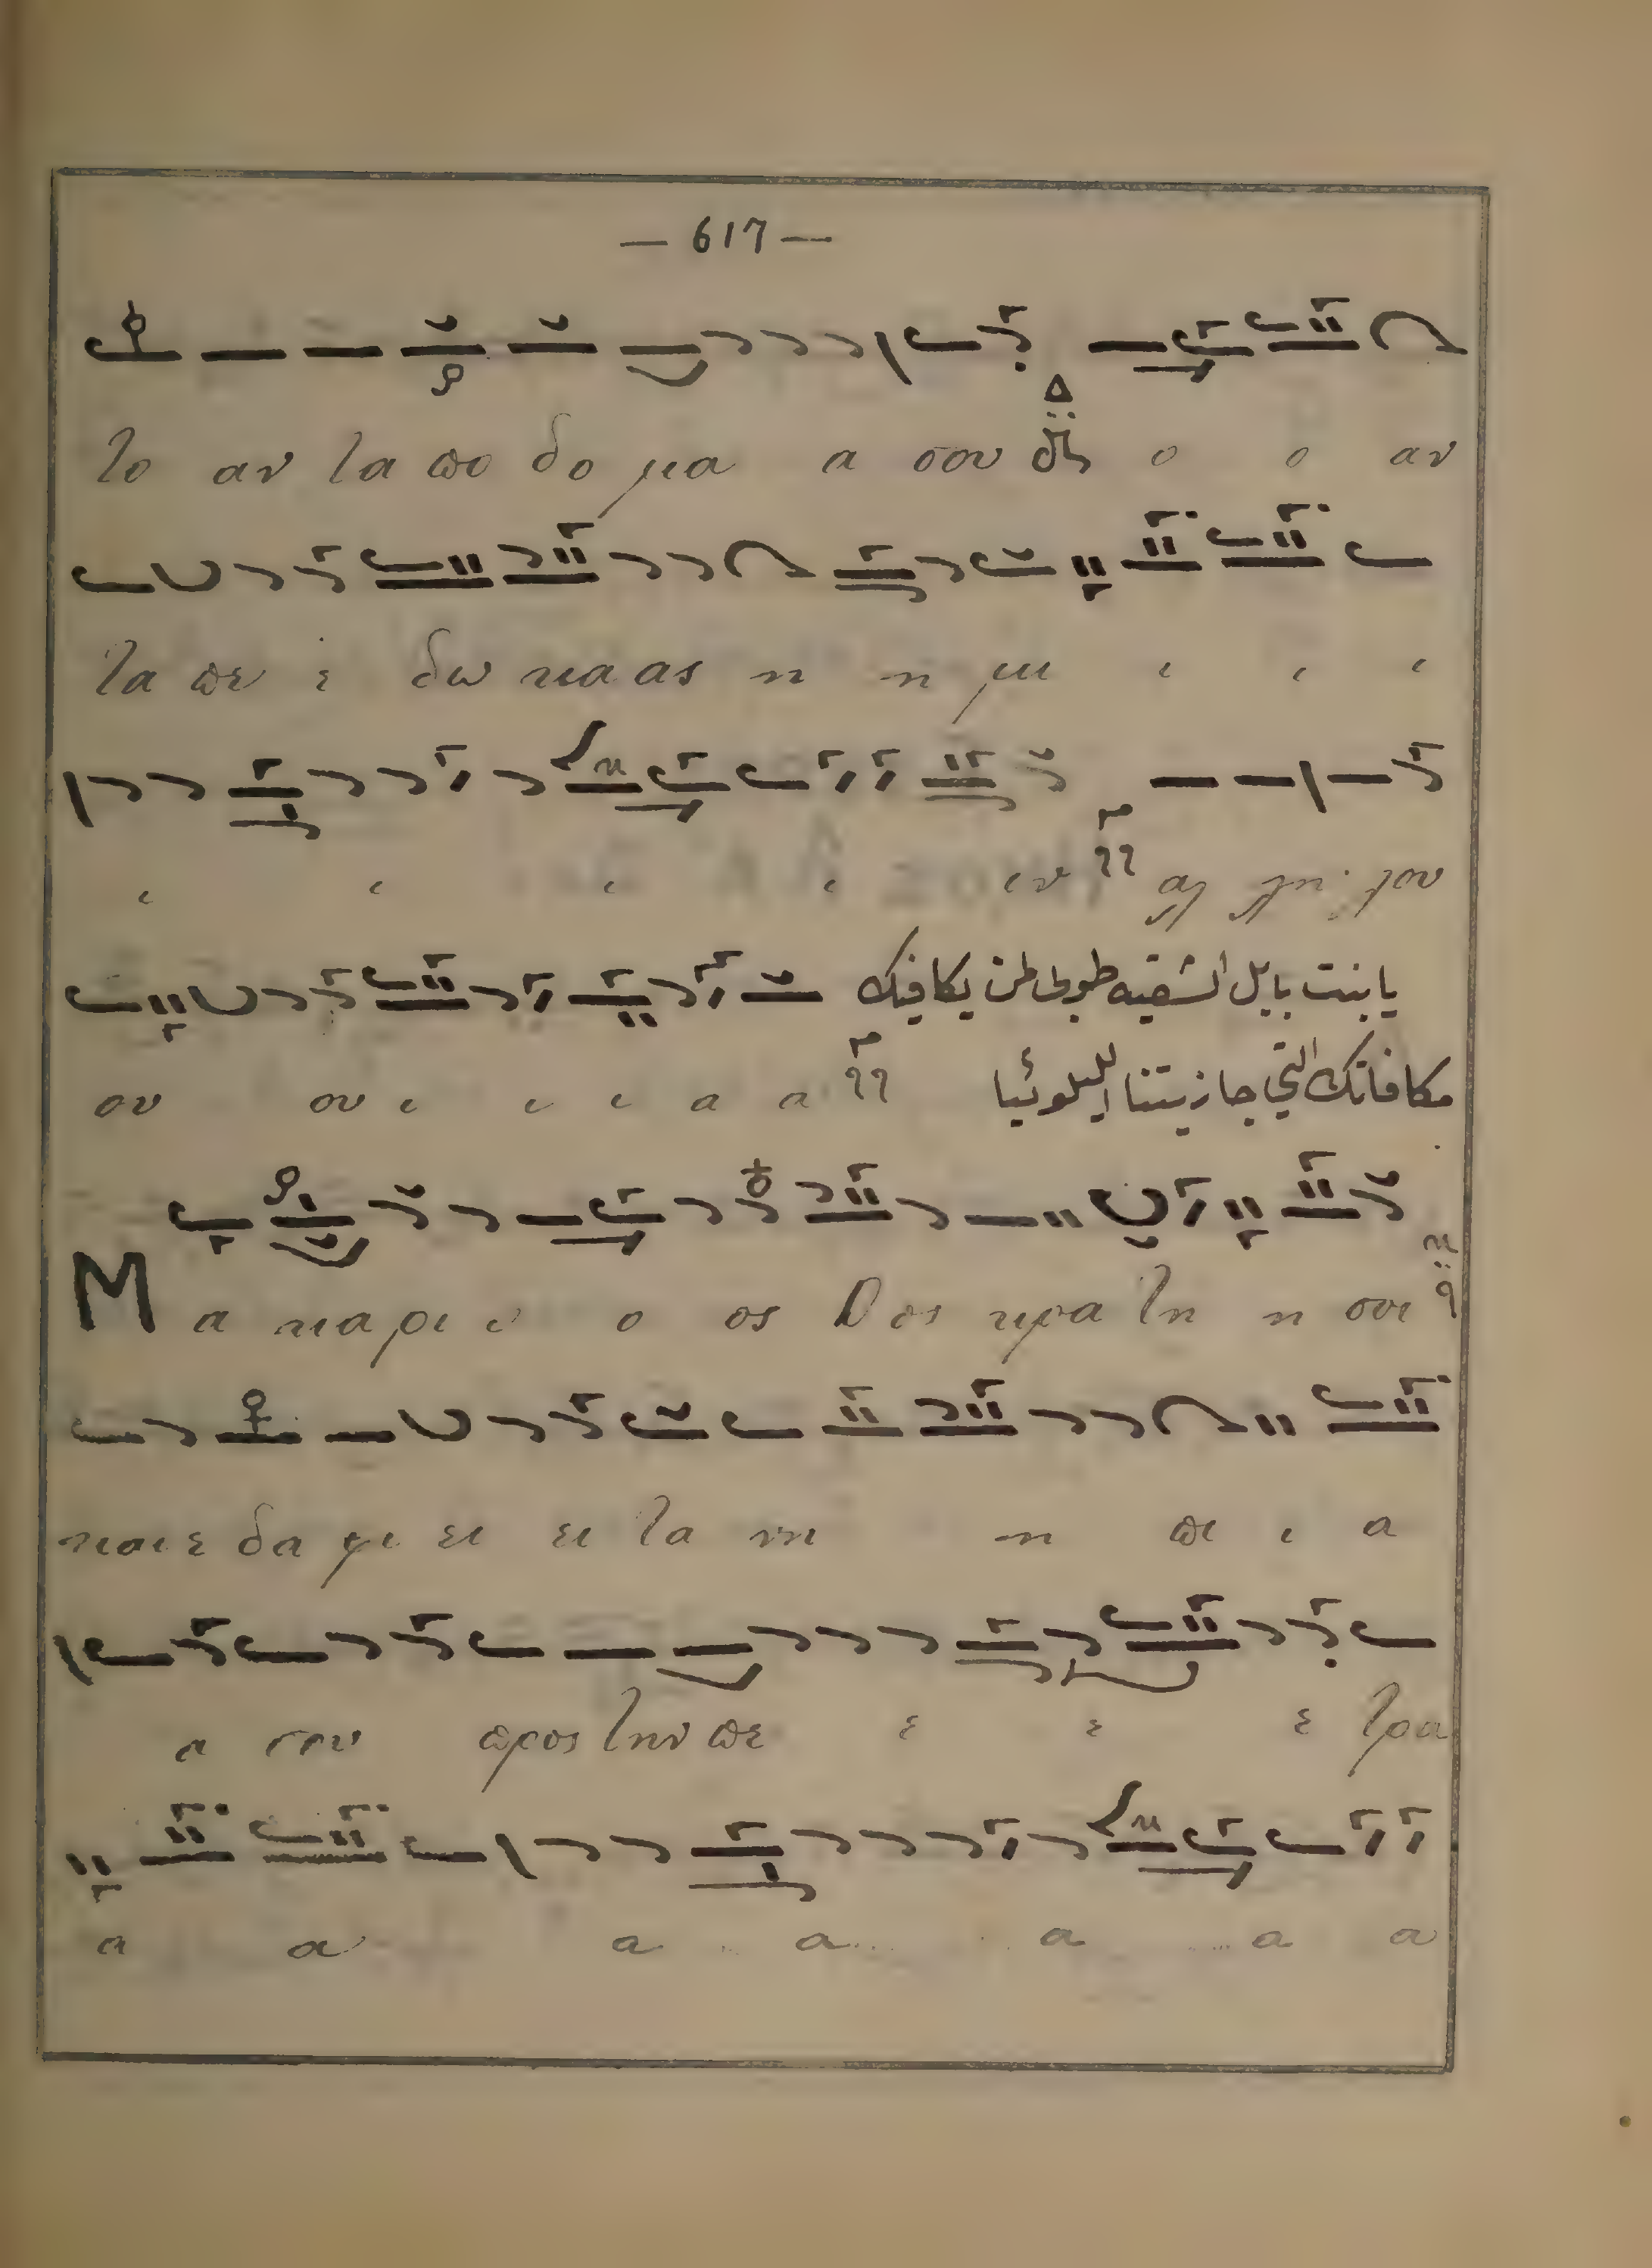 — 617 —
το αν τα πο δο μα α σου ο ο αν
τα πε ε δω κα ας η η μι ι ι ι
ι ι ι ι ιν αλ λη λου
يا بنت بابل الشقيه طوبى لمن يكافيك
ου ου ι ι ι α α مكافاتك التي جازيتنا الليلوئيا
Μ α κα ρι ι ο ος Ος κρα τη η σει
και ε δα φι ει ει τα νη η πι ι α
α σου προς την πε ε ε ε τρα
α α α α α α α